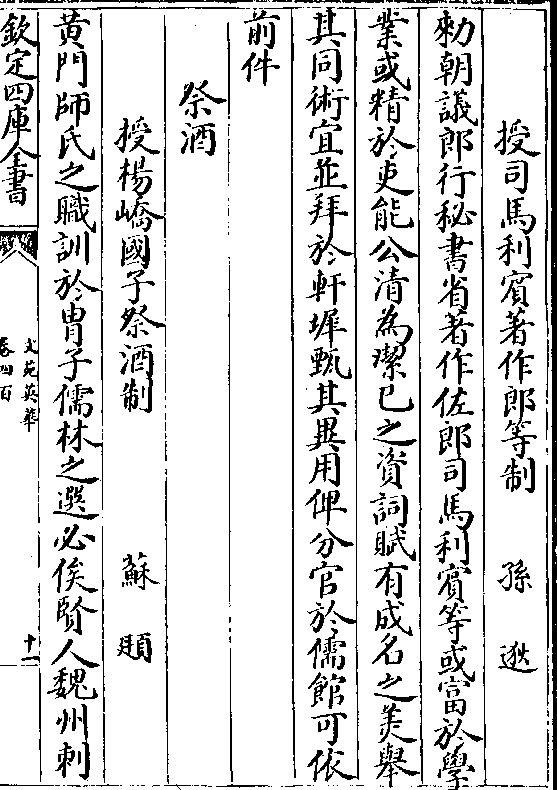 授司馬利賓著作郎等制 孫逖
勅朝議郎行秘書省著作佐郎司馬利賓等或富於學
業或精於吏能公清為潔已之資詞賦有成名之美舉
其同術宜並拜於軒墀甄其異用俾分官於儒館可依
前件
祭酒
授楊嶠國子祭酒制 蘇頲
黄門師氏之職訓於胄子儒林之選必俟賢人魏州刺
欽定四庫全書
文苑英華
卷四百
十一